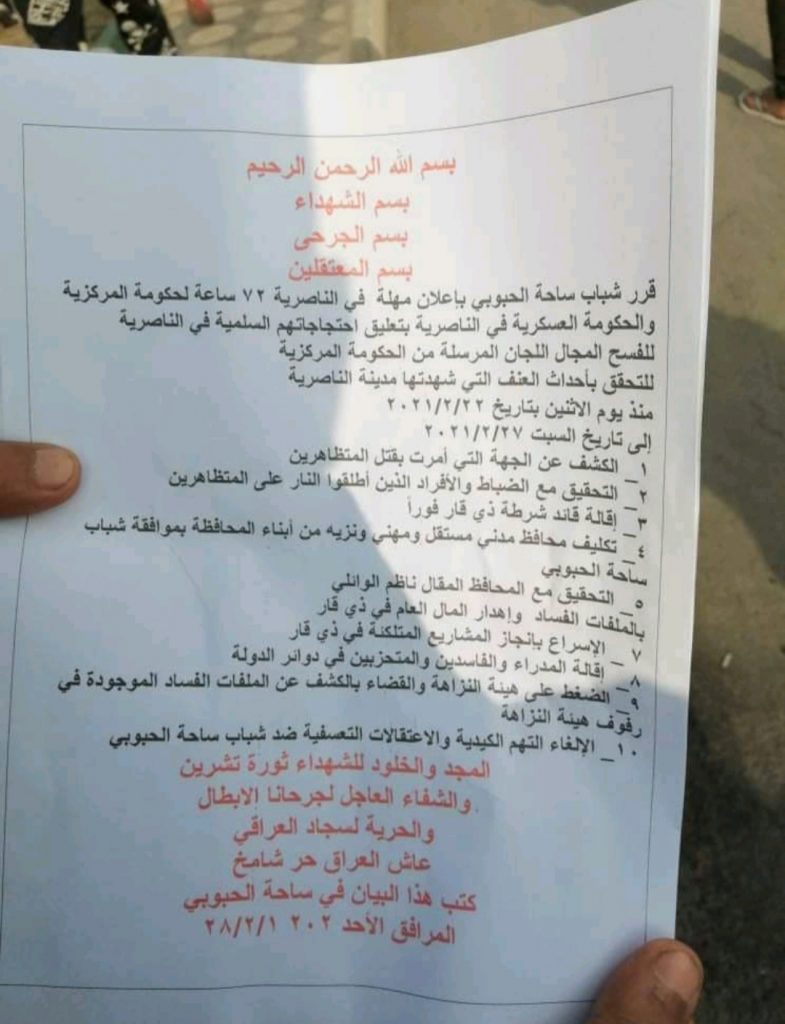 بسم الله الرحمن الرحيم
بسم الشهداء
بسم الجرحى
بسم المعتقلين
قرر شباب ساحة الحبوبي بإعلان مهلة في الناصرية ٧٢ ساعة لحكومة المركزية
والحكومة العسكرية في الناصرية بتعليق احتجاجاتهم السلمية في الناصرية
للفسح المجال اللجان المرسلة من الحكومة المركزية
للتحقق بأحداث العنف التي شهدتها مدينة الناصرية
منذ يوم الاثنين بتاريخ ٢٠٢١/٢/٢٢
إلى تاريخ السبت ٢٠٢١/٢/٢٧
١_ الكشف عن الجهة التي أمرت بقتل المتظاهرين
٢_ التحقيق مع الضباط والأفراد الذين أطلقوا النار على المتظاهرين
٣_ إقالة قائد شرطة ذي قار فوراً
٤_ تكليف محافظ مدني مستقل ومهني ونزيه من أبناء المحافظة بموافقة شباب
ساحة الحبوبي
٥_ التحقيق مع المحافظ المقال ناظم الوائلي
بالملفات الفساد وإهدار المال العام في ذي قار
٧_ الإسراع بإنجاز المشاريع المتلكئة في ذي قار
٨_ إقالة المدراء والفاسدين والمتحزبين في دوائر الدولة
٩_ الضغط على هيئة النزاهة والقضاء بالكشف عن الملفات الفساد الموجودة في
رفوف هيئة النزاهة
١٠_ الإلغاء التهم الكيدية والاعتقالات التعسفية ضد شباب ساحة الحبوبي
المجد والخلود للشهداء ثورة تشرين
والشفاء العاجل لجرحانا الابطال
والحرية لسجاد العراقي
عاش العراق حر شامخ
كتب هذا البيان في ساحة الحبوبي
المرافق الأحد ٢٠٢ ٢٨/٢/١